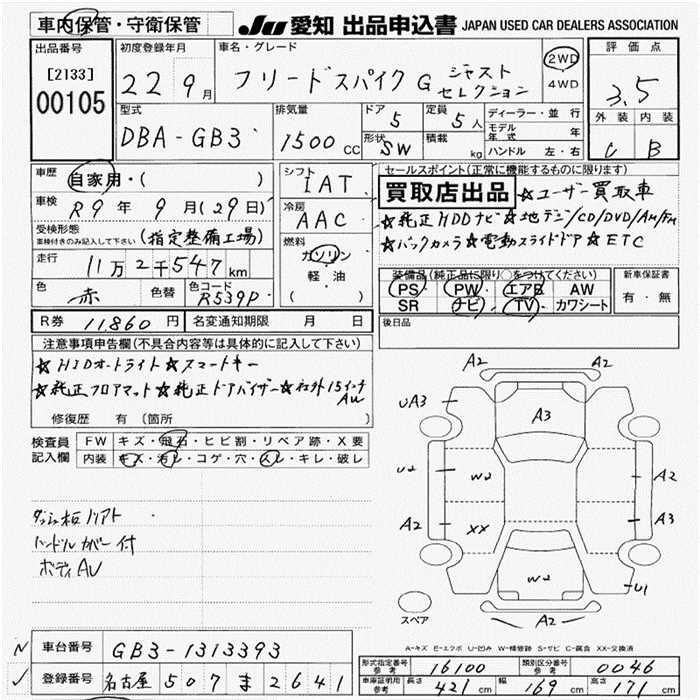 車内保管・守衛保管
JU 愛知 出品申込書 JAPAN USED CAR DEALERS ASSOCIATION
出品番号
[2133]
00105
初度登録年月
22 9月
車名・グレード
フリードスパイク G ジャスト
セレクション
2WD
4WD
評価点
3.5
外装 内装
C B
型式
DBA-GB3
排気量
1500 CC
ドア 5
形状 SW
定員 5人
積載 kg
ディーラー・並行
モデル年式 年
ハンドル 左・右
車歴
自家用・( )
車検
R9年 9月(29日)
受検形態
車検付きのみ記入して下さい
(指定整備工場)
走行
11万2千547km
色
赤
色替
色コード
R539P
シフト
IAT
冷房
AAC
燃料
ガソリン
軽・油
( )
セールスポイント(正常に機能するものに限ります)
買取店出品 ☆ユーザー買取車
☆純正HDDナビ☆地デジ/CD/DVD/AM/FM
☆バックカメラ☆電動スライドドア☆ETC
装備品(純正品S限り○をつけてください)
PS PW エアB AW
SR ナビ TV カワシート
新車保証書
有・無
R券 11860円
名変通知期限 月 日
後日品
注意事項申告欄(不具合内容等は具体的に記入して下さい)
☆HIDオートライト☆スマートキー
☆純正フロアマット☆純正ドアバイザー☆社外15インチ
AW
修復歴 有(箇所
検査員
記入欄
FW キズ・飛石・ヒビ割・リペア跡・X要
内装 キズ・汚レ・コゲ・穴・スレ・キレ・破レ
ハンドルカバー付
A2
UA3
A3
A2
U2
W2
A2
A2
XX
A3
W2
U1
A2
スペア
A-キズ E-エクボ U-凹み W-補修跡 S-サビ C-腐食 XX-交換済
車台番号 GB3-1313393
登録番号 名古屋 507 ま 2641
形式指定番号
参考 16100
類別区分番号
参考 0046
車庫証明用
参考 長さ 421cm 幅 169cm 高さ 171cm